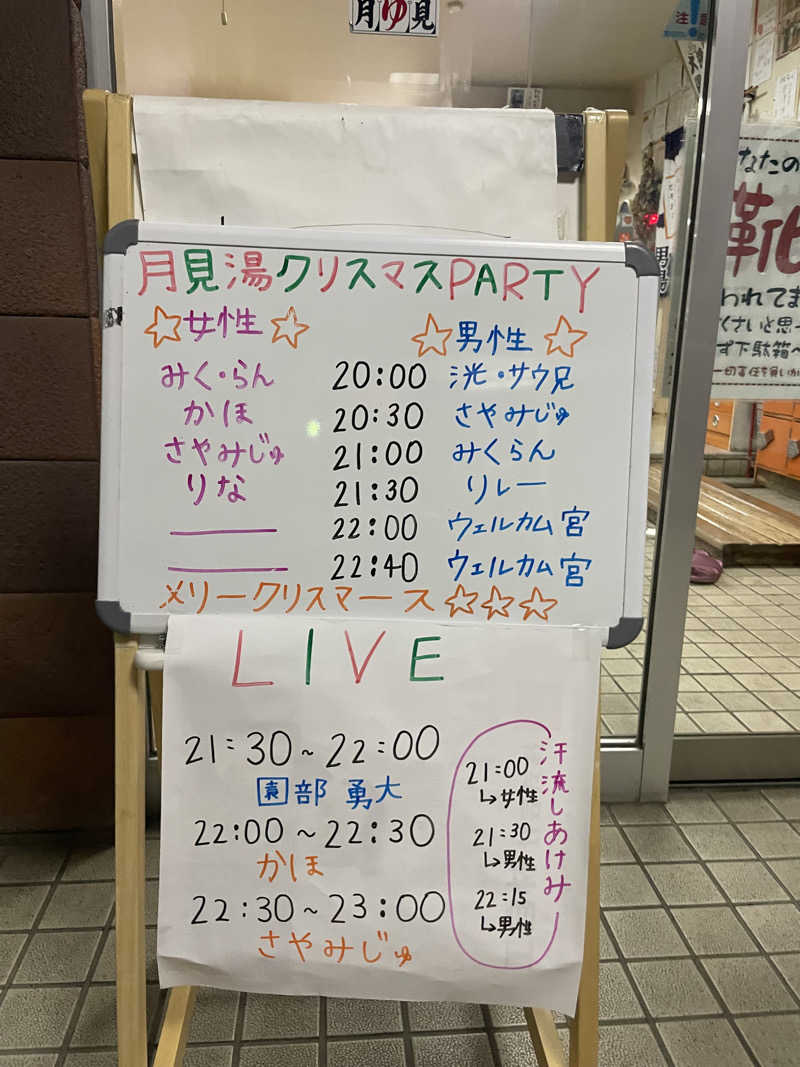 月ゆ見
注意
月見湯クリスマスPARTY
☆女性☆ ☆男性☆
みく・らん 20:00 洸・サウ兄
かほ 20:30 さやみじゅ
さやみじゅ 21:00 みくらん
りな 21:30 リレー
22:00 ウェルカム宮
22:40 ウェルカム宮
メリークリスマース☆☆☆
LIVE
21:30~22:00
園部 勇大
22:00~22:30
かほ
22:30~23:00
さやみじゅ
汗流しあけみ
21:00
↳女性
21:30
↳男性
22:15
↳男性
なたの
靴
われてま
くさいと思っ
ず下駄箱へ
一切責任を負いか